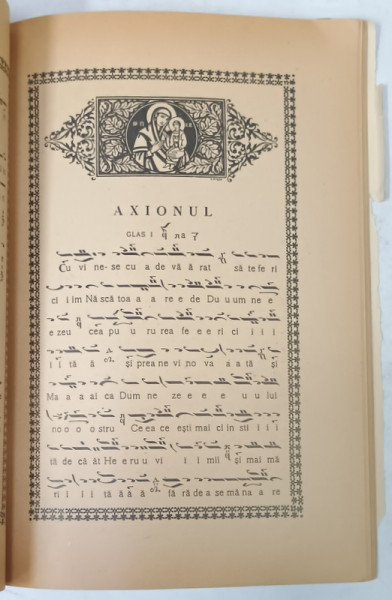 AXIONUL
GLAS I πα
Cu vi ne-se cu a de vă ă rat să te fe ri
ci i im Năs că toa a a re e de Du u um ne e
e zeu cea pu u ru rea fe e e ri ci i i i
i i tă ă și prea ne vi no va a a tă și
Ma a a ai ca Dum ne ze e e e u u lui
no o o o stru Ceea ce ești mai cin sti i i i
tă de că ăt He e ru u vi i i mii și mai mă
ri i i i tă ă ă ă fă ră de a se mă na a re